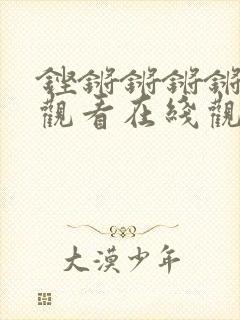 鏗鏘鏘鏘鏘
觀看在綫觀
大漠少年